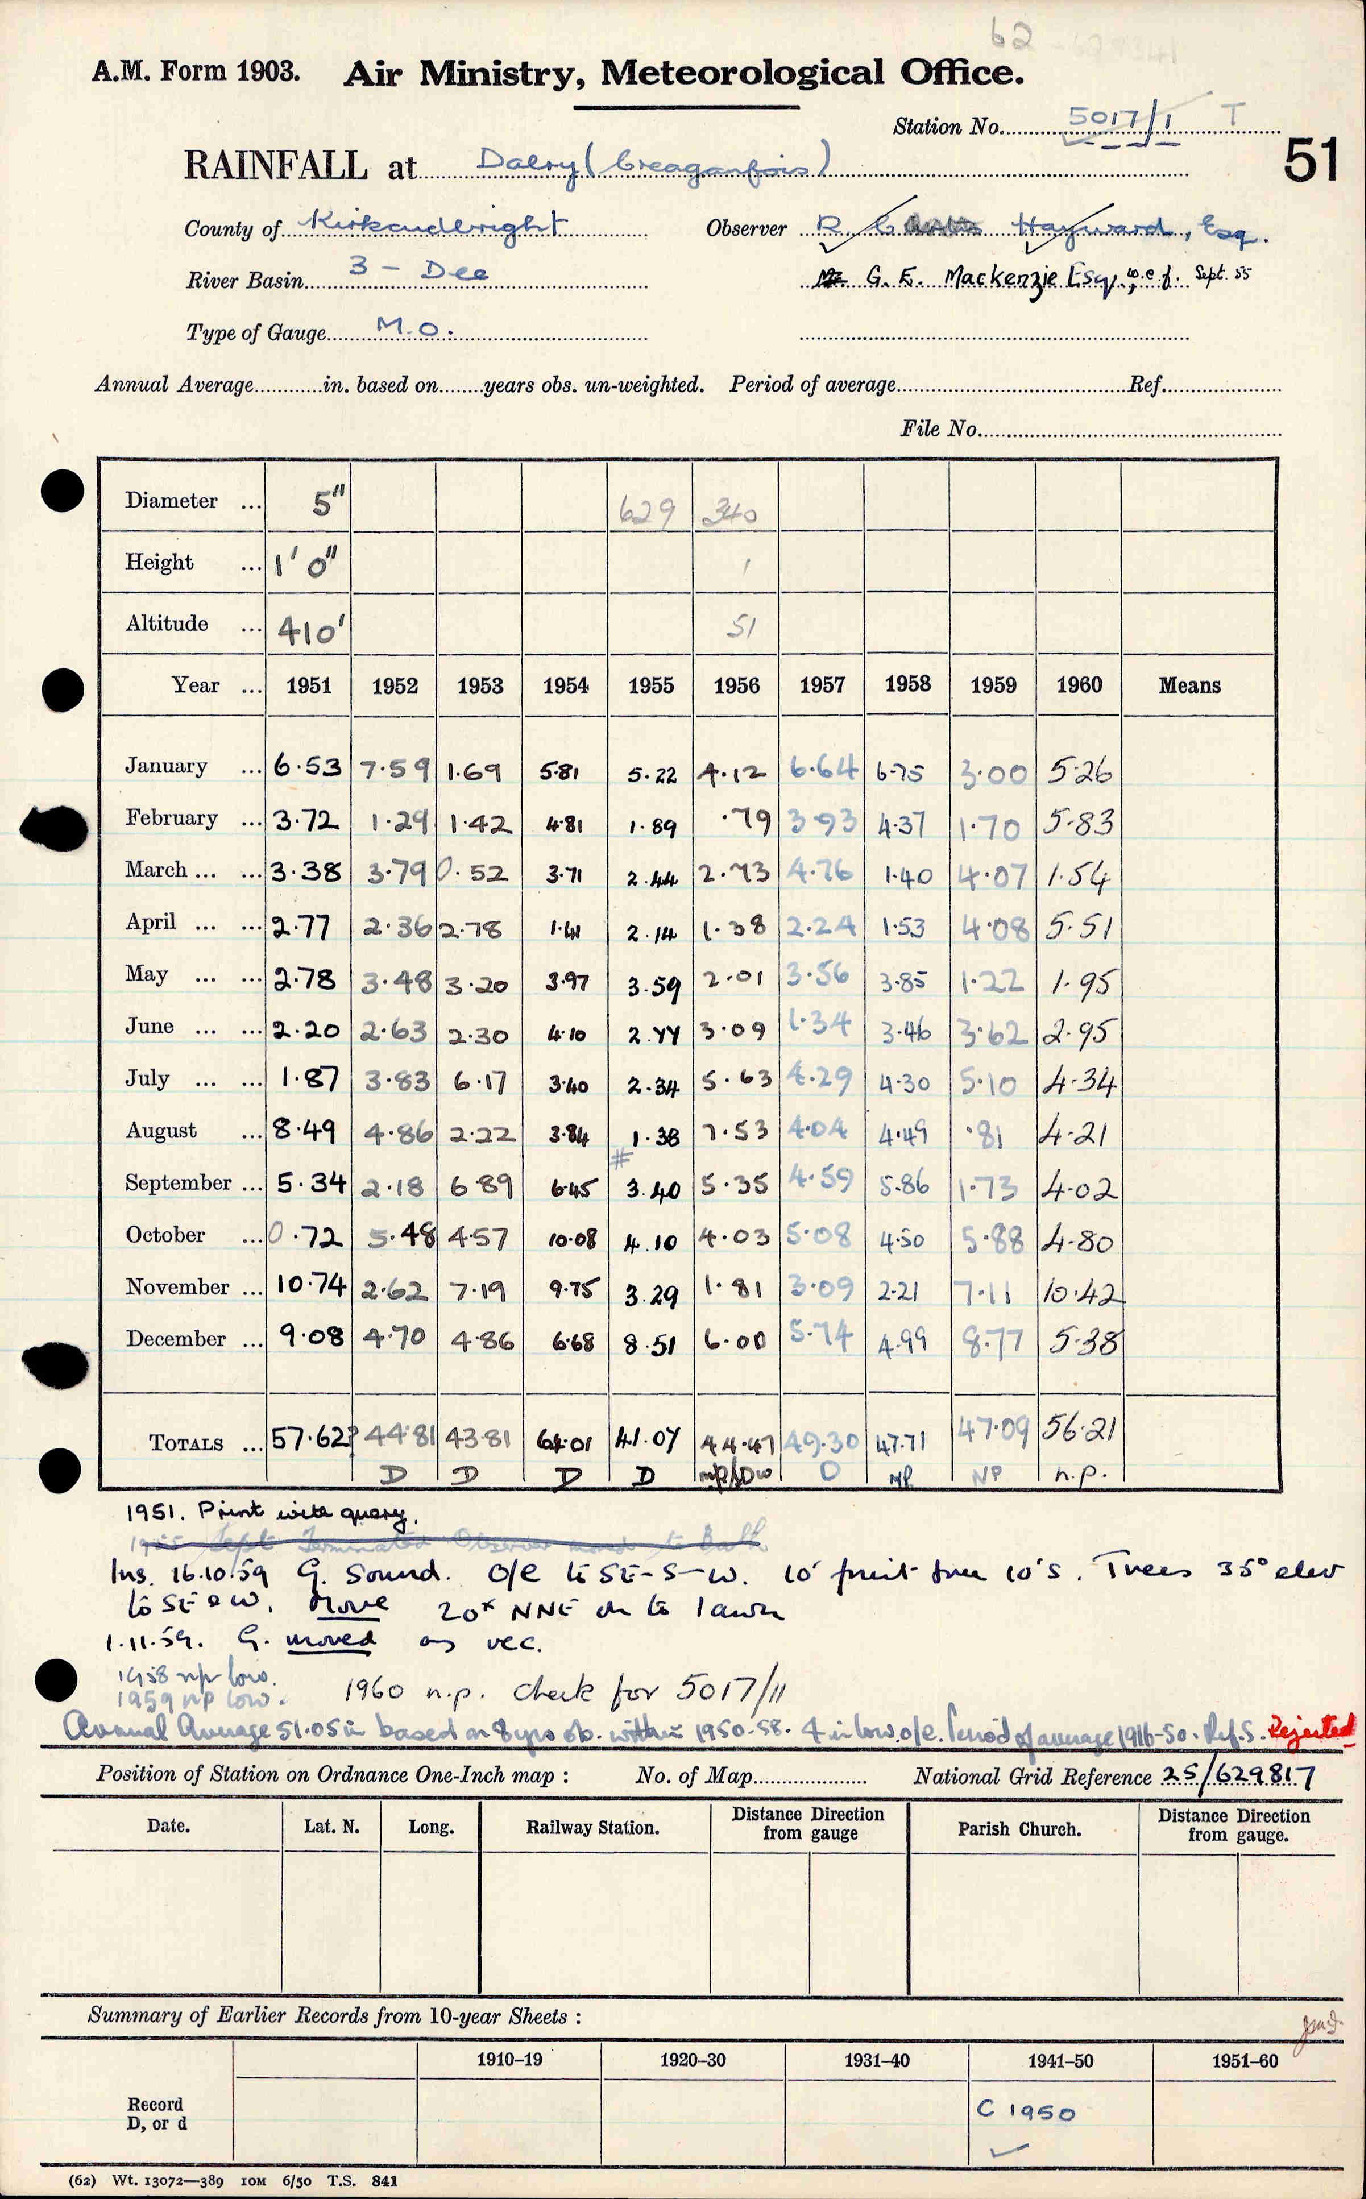 62
A.M. Form 1903. Air Ministry, Meteorological Office.
Station No. 5017/1 T
51
RAINFALL at Dalry (Creaganfois)
County of Kirkcudbright Observer R. C. Hayward, Esq.
River Basin 3 - Dee G. E. Mackenzie Esq., w.e.f. Sept. 55
Type of Gauge M.O.
Annual Average in. based on years obs. un-weighted. Period of average Ref.
File No.
Diameter ... 5" 629 340
Height ... 1' 0" 1
Altitude ... 410' 51
Year ... 1951 1952 1953 1954 1955 1956 1957 1958 1959 1960 Means
January ... 6.53 7.59 1.69 5.81 5.22 4.12 6.64 6.75 3.00 5.26
February ... 3.72 1.29 1.42 4.81 1.89 .79 3.93 4.37 1.70 5.83
March ... ... 3.38 3.79 0.52 3.71 2.44 2.73 4.76 1.40 4.07 1.54
April ... ... 2.77 2.36 2.78 1.41 2.14 1.38 2.24 1.53 4.08 5.51
May ... ... 2.78 3.48 3.20 3.97 3.59 2.01 3.56 3.85 1.22 1.95
June ... ... 2.20 2.63 2.30 4.10 2.77 3.09 1.34 3.46 3.62 2.95
July ... ... 1.87 3.83 6.17 3.40 2.34 5.63 4.29 4.30 5.10 4.34
August ... 8.49 4.86 2.22 3.84 1.38 7.53 4.04 4.49 .81 4.21
September ... 5.34 2.18 6.89 6.45 # 3.40 5.35 4.59 5.86 1.73 4.02
October ... 0.72 5.48 4.57 10.08 4.10 4.03 5.08 4.50 5.88 4.80
November ... 10.74 2.62 7.19 9.75 3.29 1.81 3.09 2.21 7.11 10.42
December ... 9.08 4.70 4.86 6.68 8.51 6.00 5.74 4.99 8.77 5.38
TOTALS ... 57.62? 44.81 43.81 64.01 41.07 44.47 49.30 47.71 47.09 56.21
D D D D D NP NP n.p.
1951. Print with query.
1955 Sept Terminated Observer moved to Bath
Ins. 16.10.59 G. Sound. O/e to SE-S-W. 10' fruit tree 10'S. Trees 35° elev
to SE & W. Move 20ˣ NNE on to lawn
1.11.59. G. moved as rec.
1958 np low.
1959 NP low. 1960 n.p. check for 5017/11
Annual Average 51.05 in based on 8 yrs ob. within 1950-58. 4 in low. o/e. Period of average 1916-50. Ref. S. Rejected
Position of Station on Ordnance One-Inch map : No. of Map National Grid Reference 25/629817
Date. Lat. N. Long. Railway Station. Distance Direction from gauge Parish Church. Distance Direction from gauge.
Summary of Earlier Records from 10-year Sheets :
1910–19 1920–30 1931–40 1941–50 1951–60
Record
D, or d
C 1950
(62) Wt. 13072—389 10M 6/50 T.S. 841